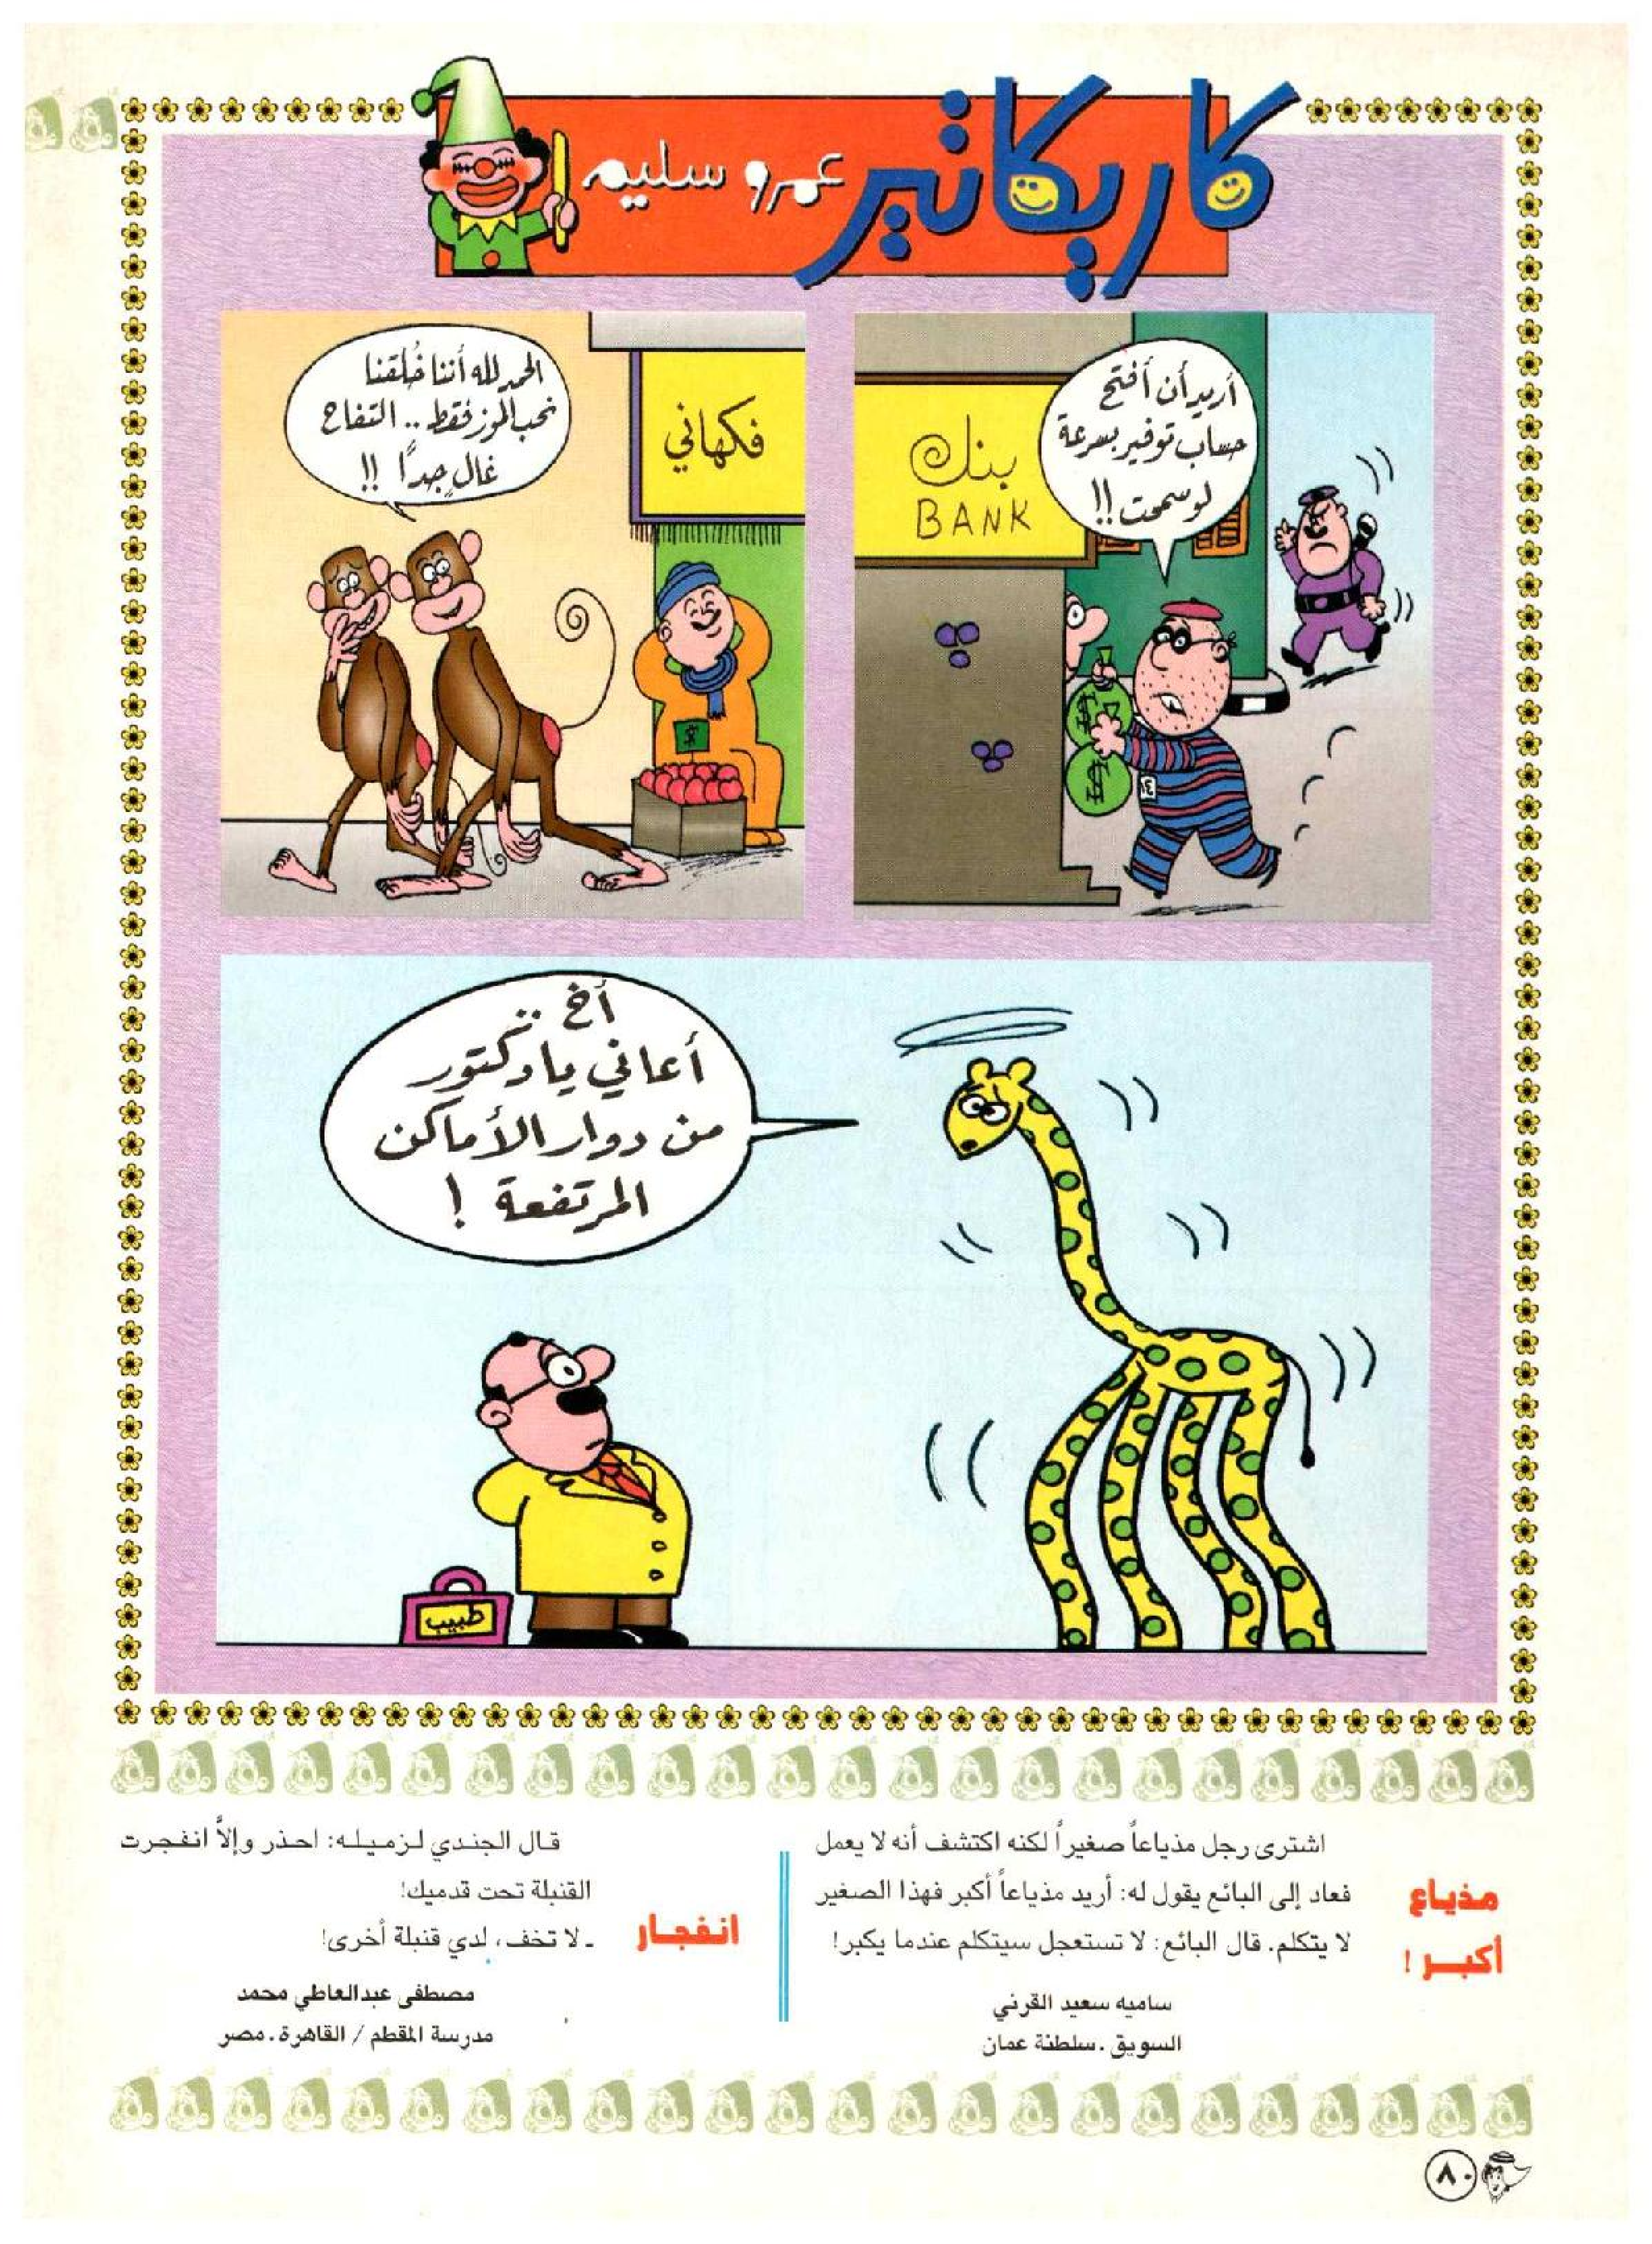 كاريكاتير
عمرو سليم
أريد أن أفتح
حساب توفير بسرعة
لو سمحت !!
بنك
BANK
الحمد لله أننا خُلقنا
نحب الموز فقط .. التفاح
غالٍ جداً !!
فكهاني
أخ ..
أعاني يا دكتور
من دوار الأماكن
المرتفعة !
طبيب
مذياع
أكبر !
اشترى رجل مذياعاً صغيراً لكنه اكتشف أنه لا يعمل
فعاد إلى البائع يقول له: أريد مذياعاً أكبر فهذا الصغير
لا يتكلم. قال البائع: لا تستعجل سيتكلم عندما يكبر!
ساميه سعيد القرني
السويق . سلطنة عمان
انفجار
قال الجندي لزميله: احذر وإلاّ انفجرت
القنبلة تحت قدميك!
ـ لا تخف، لدي قنبلة أخرى!
مصطفى عبدالعاطي محمد
مدرسة المقطم / القاهرة . مصر
٨٠